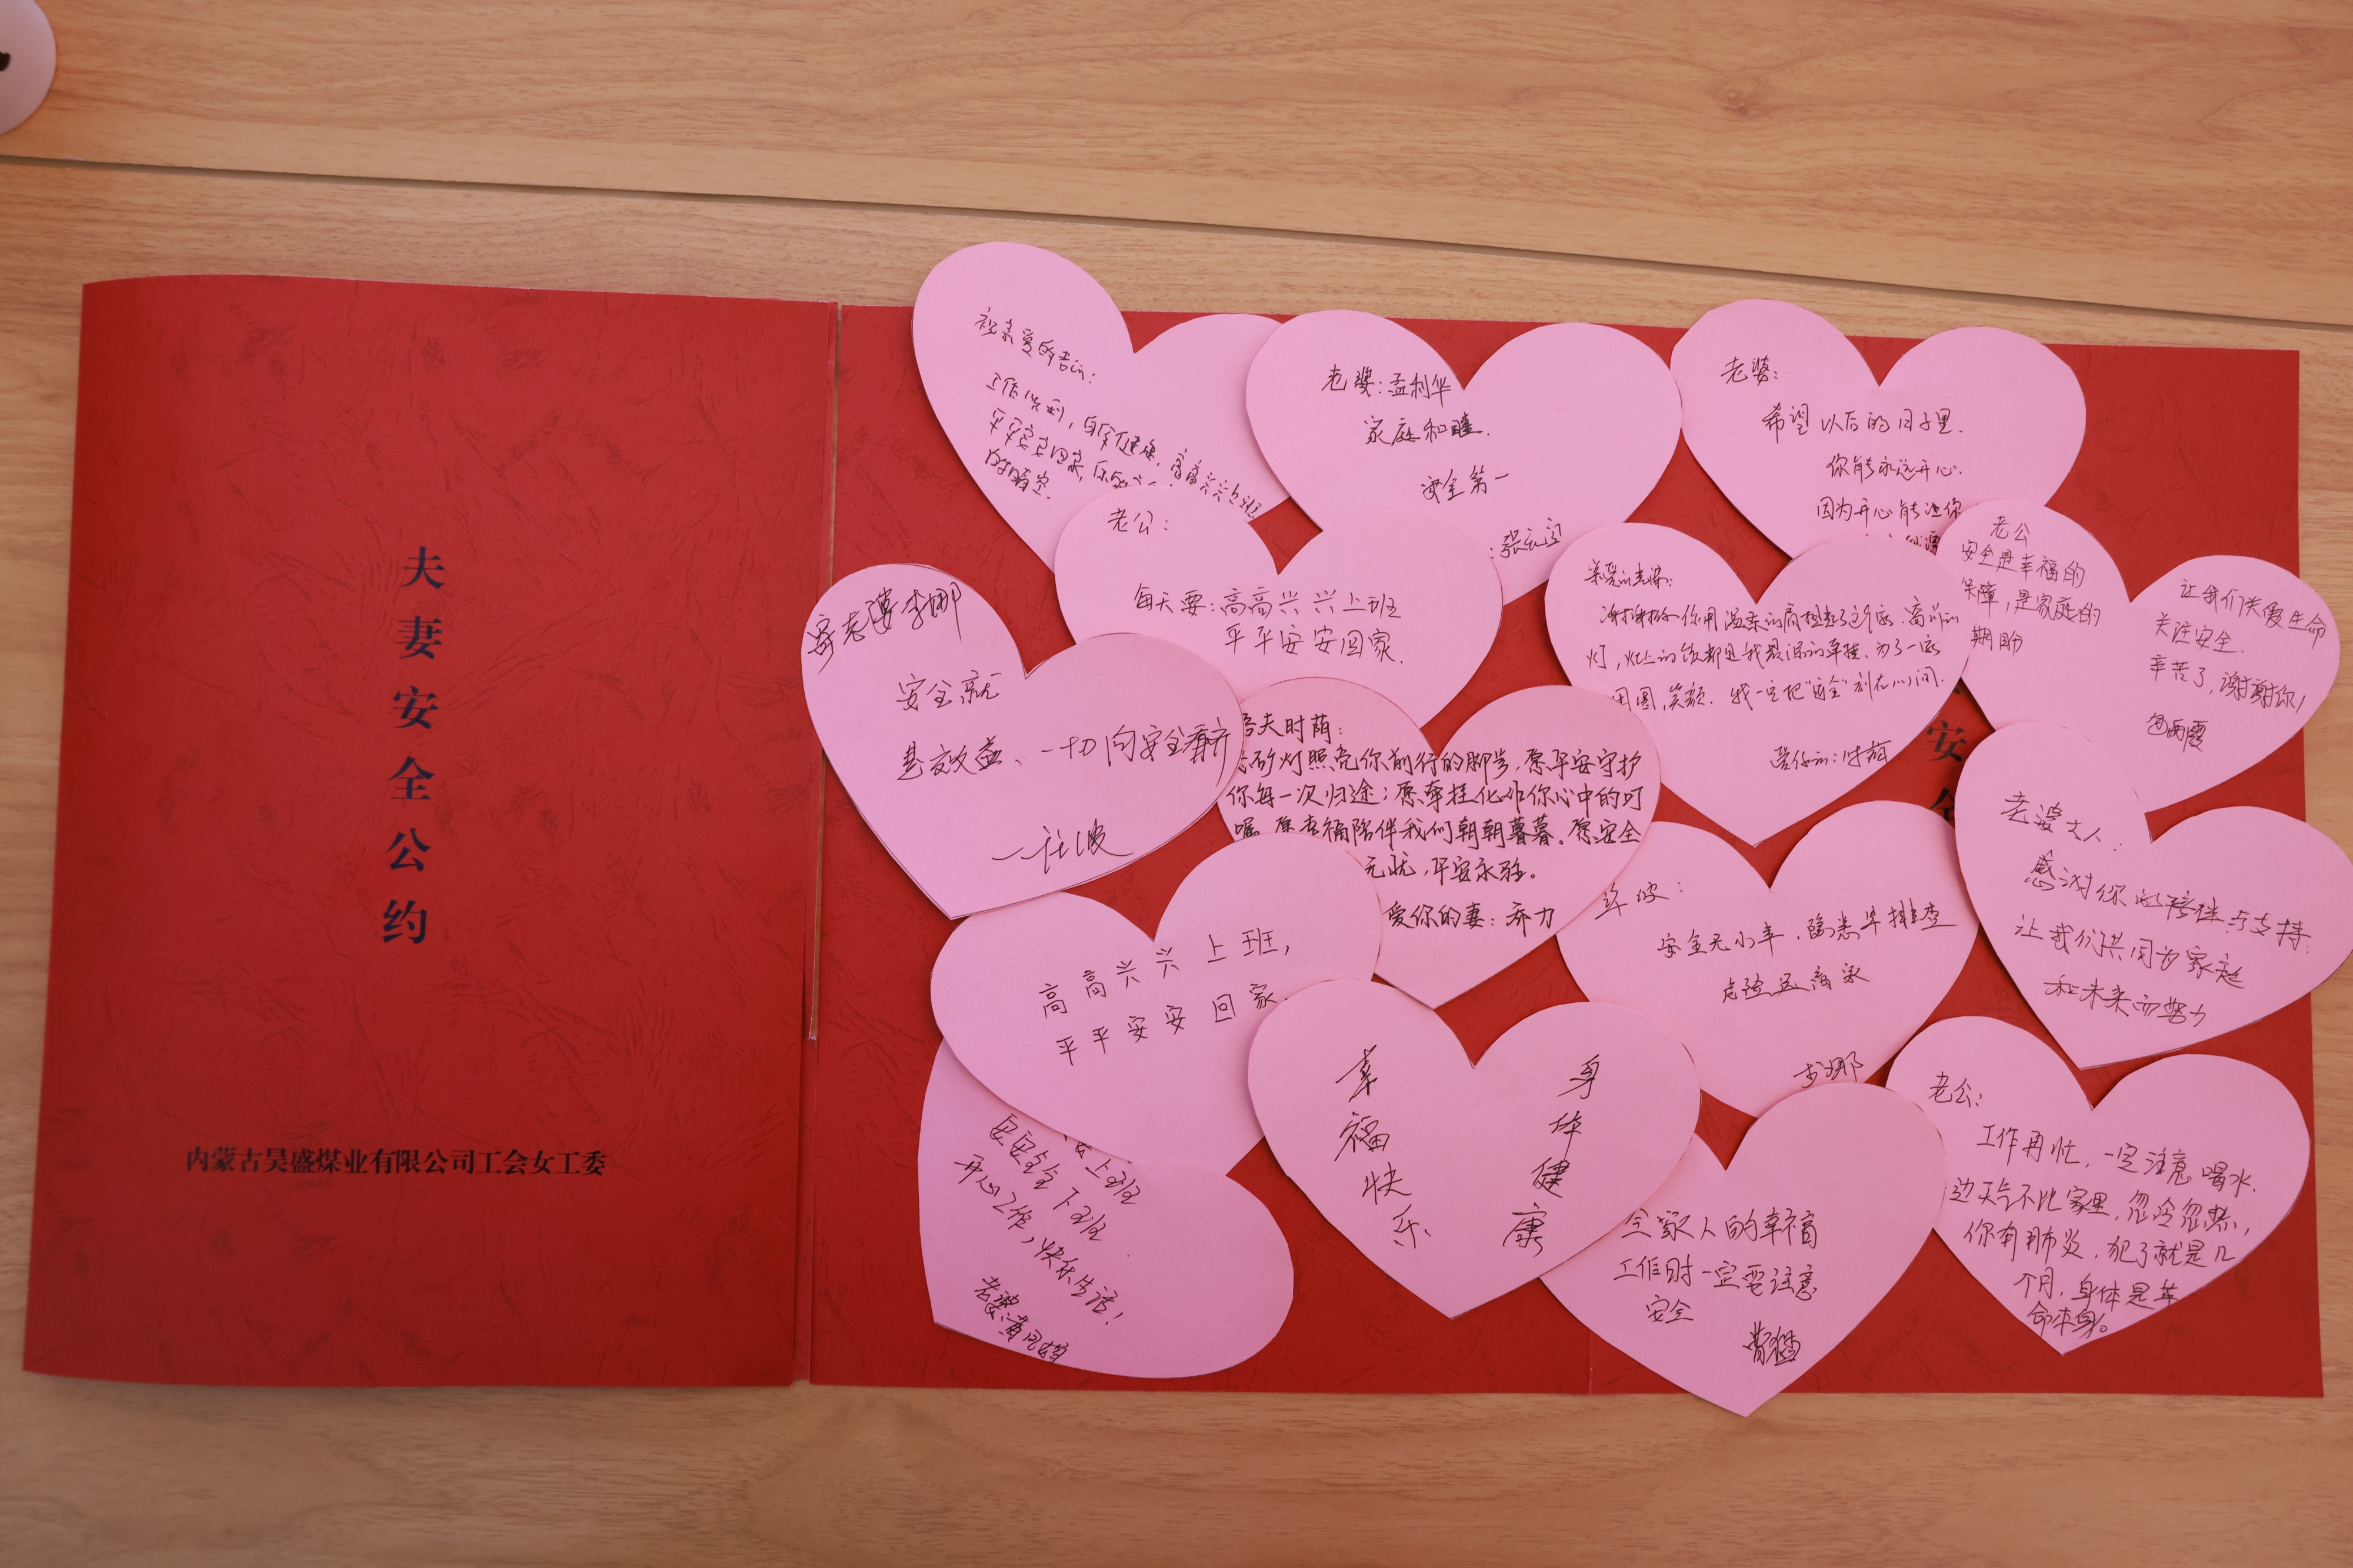 夫妻安全公约
内蒙古昊盛煤业有限公司工会女工委
祝亲爱的
工作顺利，身体健康，高高兴兴上班
平平安安回家
的晴空
老婆：孟利华
家庭和睦.
安全第一
老婆：
希望以后的日子里.
你能永远开心.
因为开心能让你
老公：
每天要：高高兴兴上班
平平安安回家.
老公
安全是幸福的
保障，是家庭的
期盼
让我们关爱生命
关注安全.
辛苦了，谢谢你！
谢谢你用温柔的肩
灯，灶上的饭都是我最深的牵挂，为了一家
团圆，笑颜. 我一定把“安全”刻在心间.
安
寄老婆李娜
安全就
是效益、一切向安全看齐
吾夫时荫：
矿灯照亮你前行的脚步，愿平安守护
你每一次归途；愿牵挂化作你心中的叮
嘱，愿幸福陪伴我们朝朝暮暮。愿安全
无忧，平安永驻。
爱你的妻：乔力
老婆大人：
感谢你的陪伴与支持.
让我们共同为家庭
和未来而努力
许波：
安全无小事，隐患早排查
危险远离家
李娜
高高兴兴上班，
平平安安回家.
上班
安安全全下班
开心工作，快乐生活！
老婆：黄凤
幸福快乐
身体健康
全家人的幸福
工作时一定要注意
安全
老公：
工作再忙，一定注意喝水.
边天气不比家里，忽冷忽热，
你有肺炎，犯了就是几
个月，身体是革
命本身。